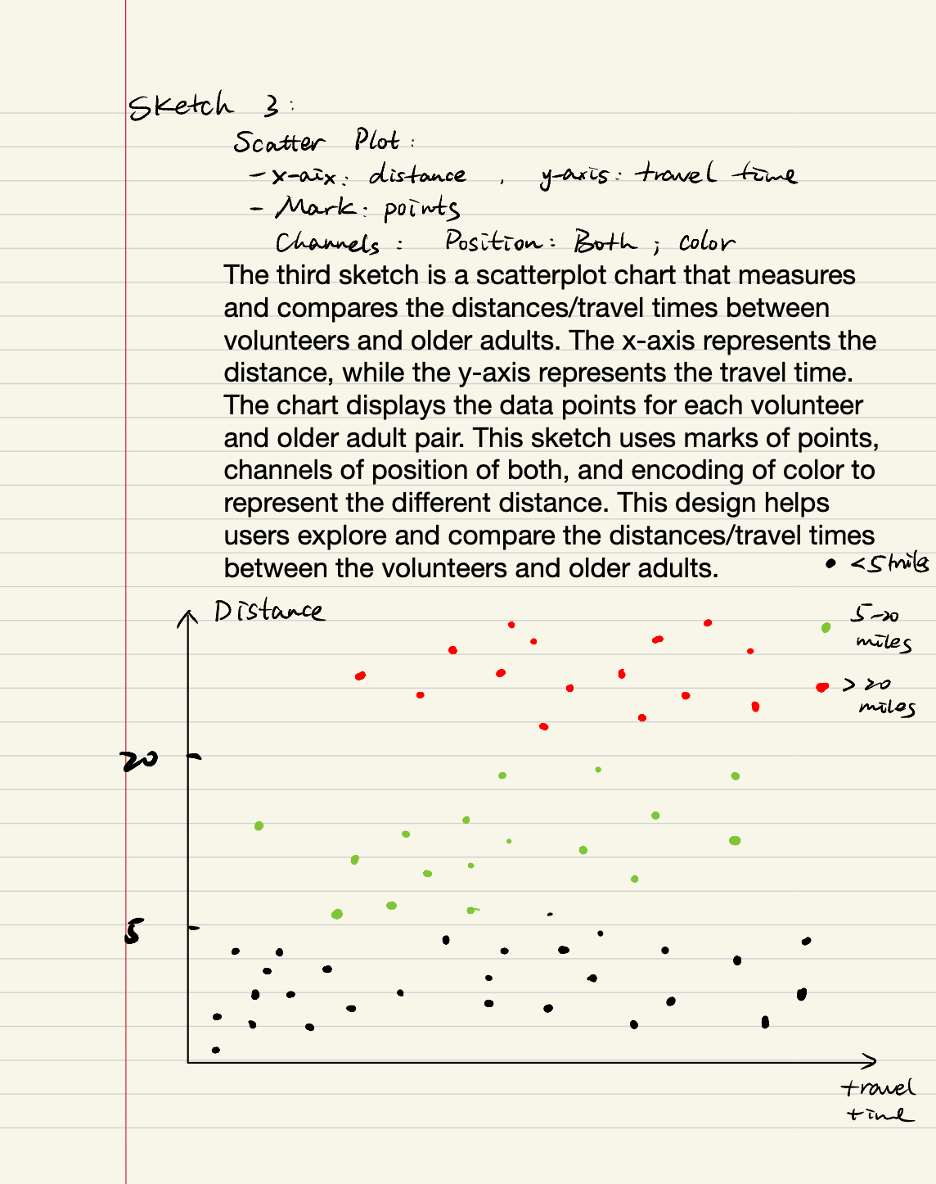 Sketch 3:
Scatter Plot:
- x-aix: distance , y-axis: travel time
- Mark: points
Channels: Position: Both ; color
The third sketch is a scatterplot chart that measures
and compares the distances/travel times between
volunteers and older adults. The x-axis represents the
distance, while the y-axis represents the travel time.
The chart displays the data points for each volunteer
and older adult pair. This sketch uses marks of points,
channels of position of both, and encoding of color to
represent the different distance. This design helps
users explore and compare the distances/travel times
between the volunteers and older adults.
<5 miles
Distance
5-20
miles
>20
miles
20
5
travel
time